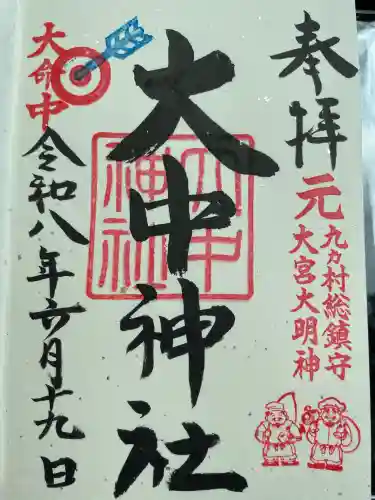 奉拝
元
九ヵ村総鎮守
大宮大明神
大中神社
大中神社
大命中
令和八年六月十九日